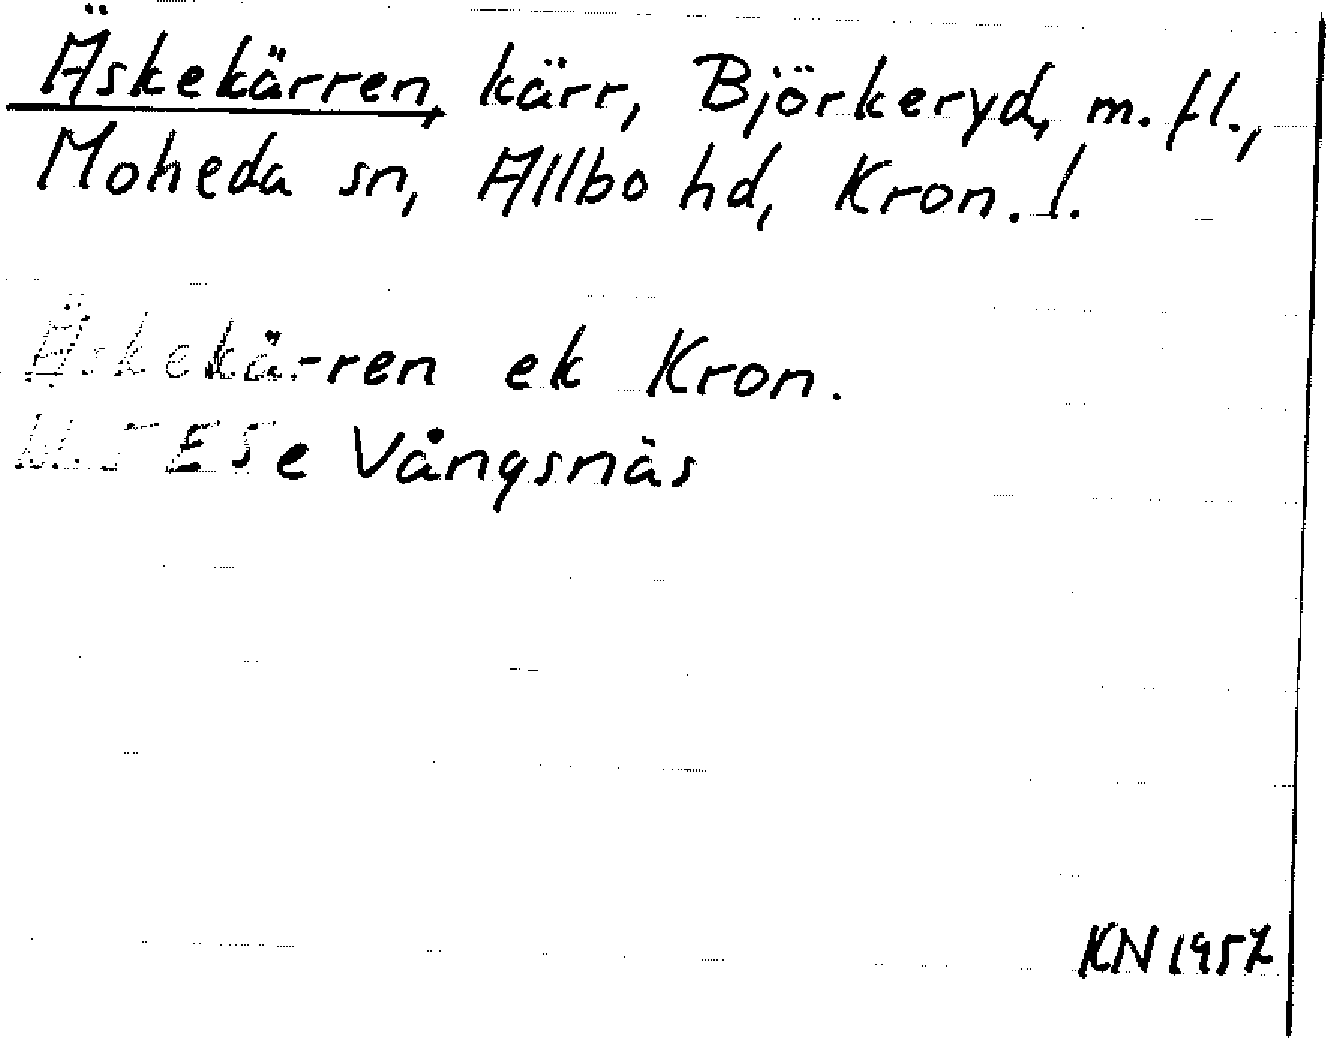 Äskekärren, kärr, Björkeryd, m. fl.,
Moheda sn, Allbo hd, Kron. l.
Äskekärren ek Kron.
ESe Vångsnäs
KN 1957